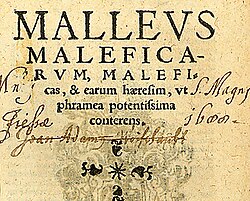 MALLEVS
MALEFICA-
RVM, MALEFI-
cas, & earum hæresim, vt
phramea potentissima
conterens.
S. Magn
1600